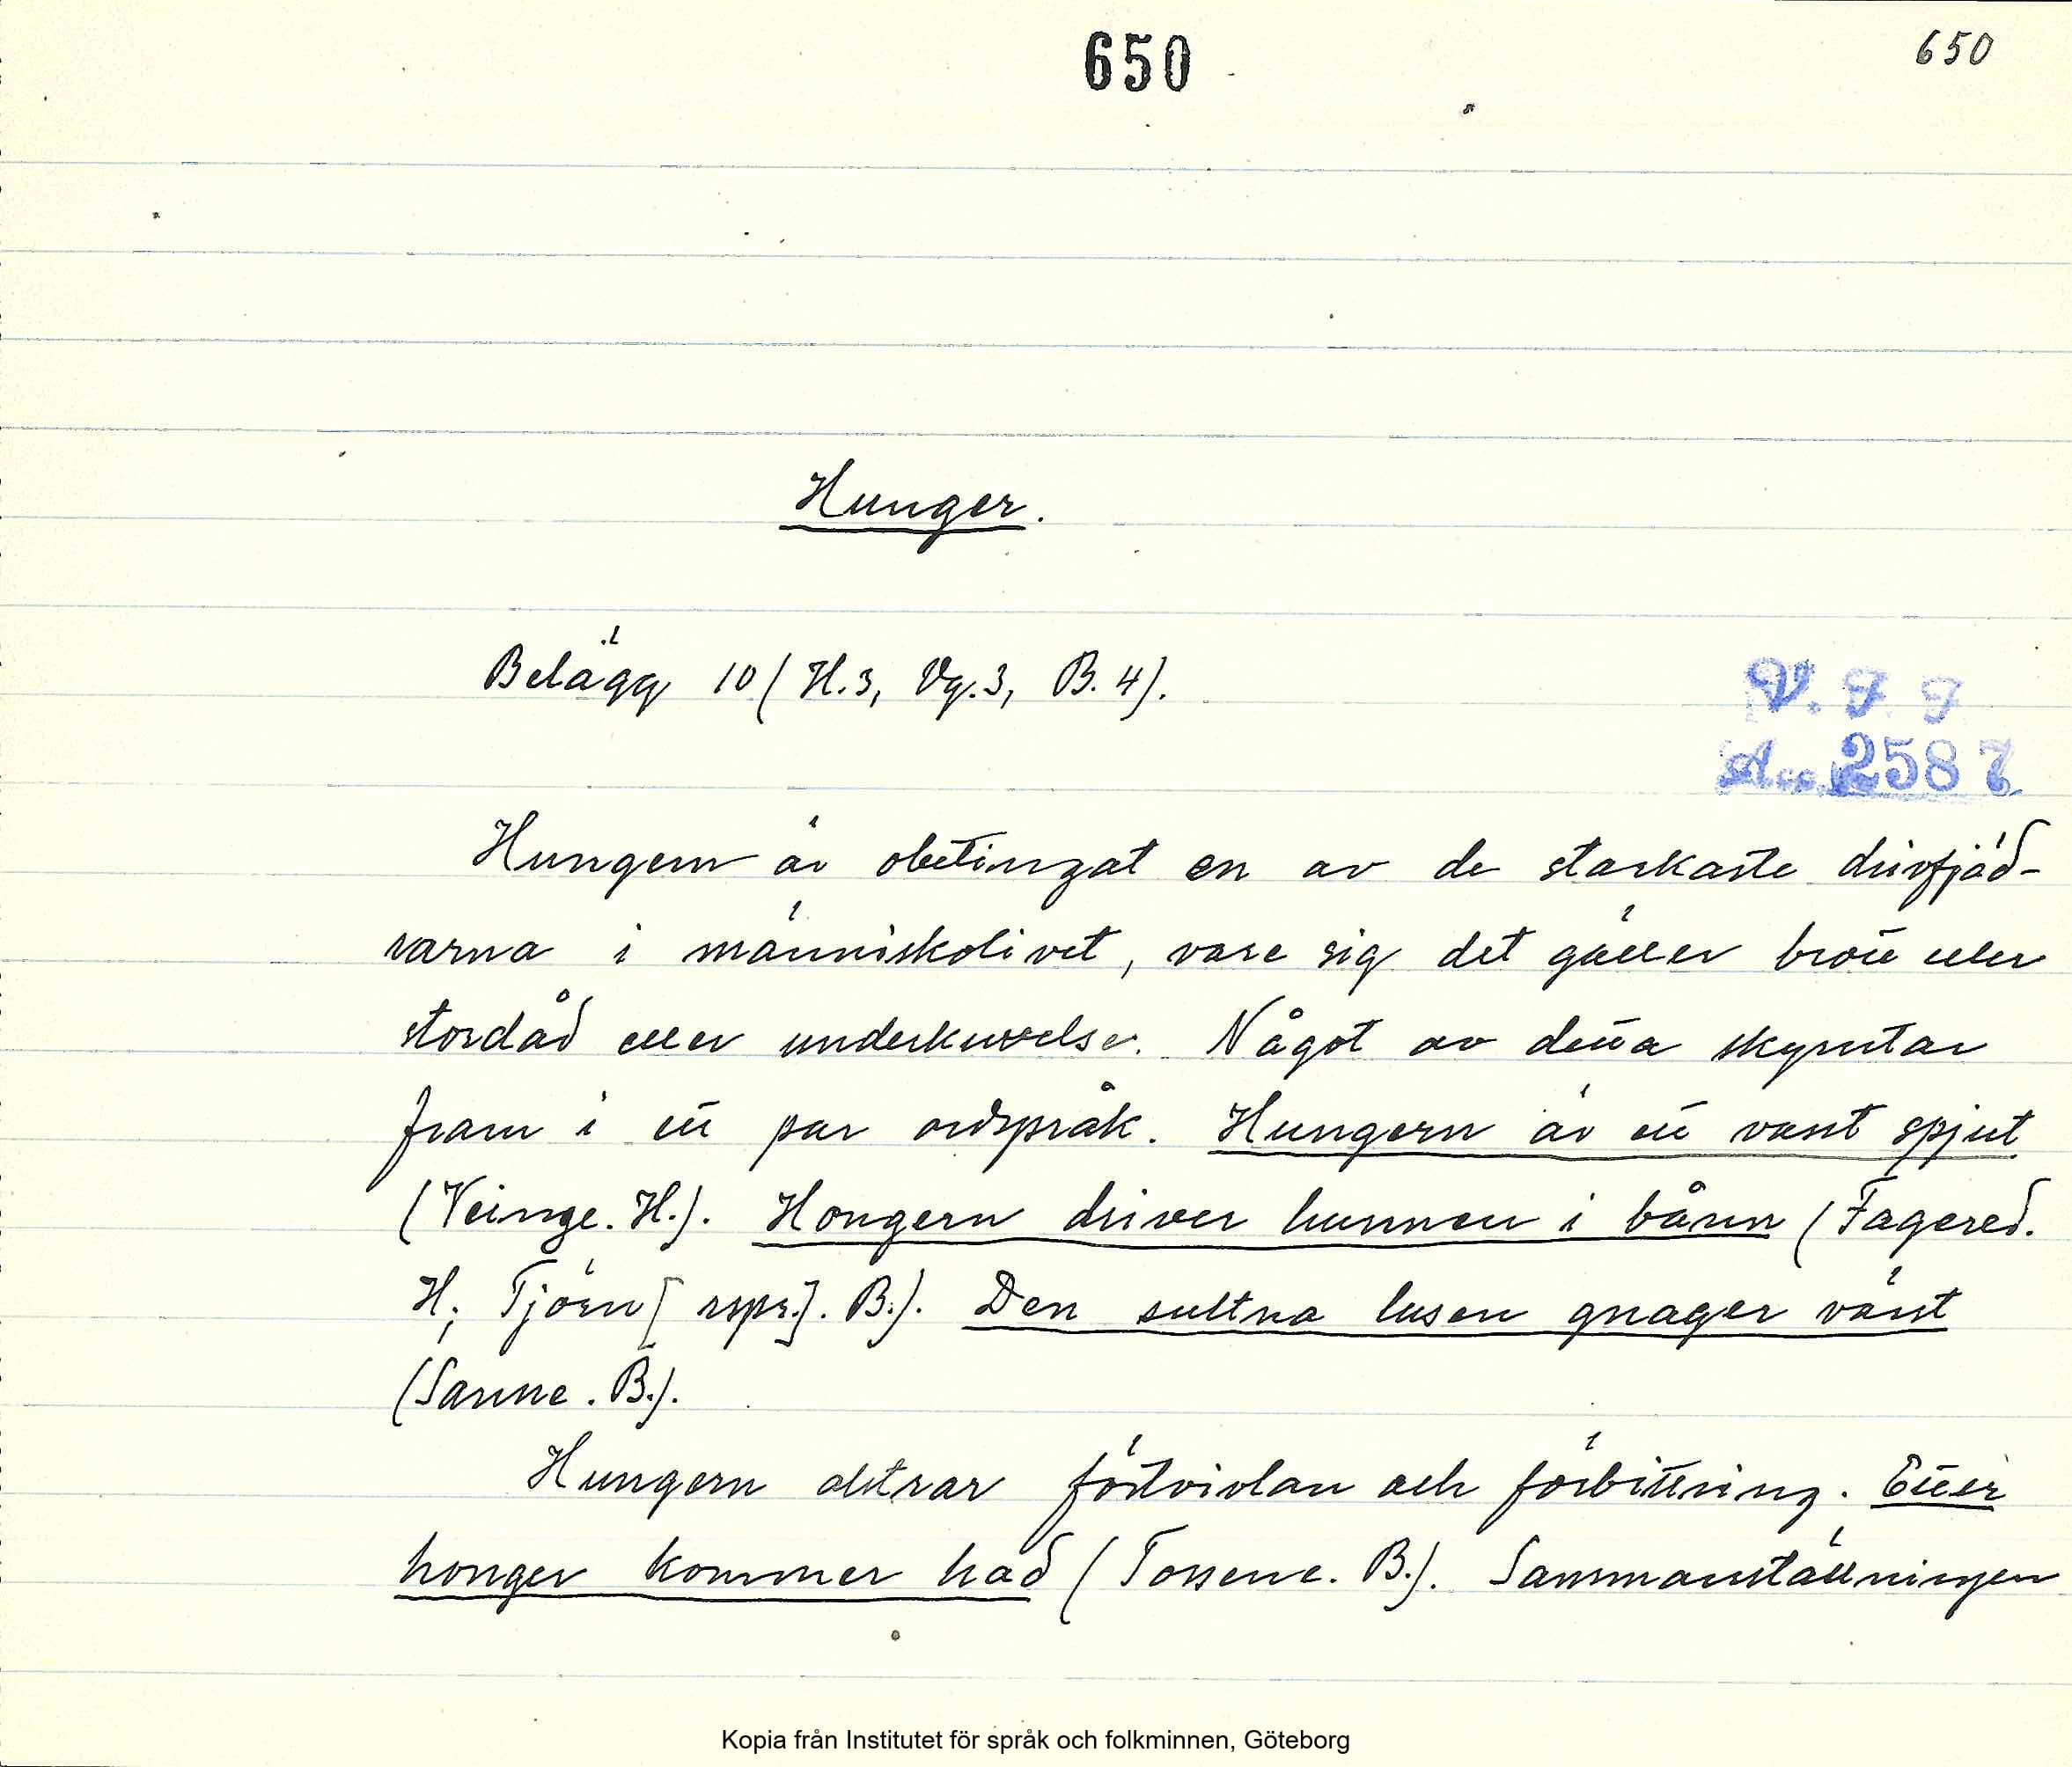 650
650
Hunger.
Belägg 10 (H.3, Vg.3, B.4).
V. F F
Acc. 2587
Hungern är obetingat en av de starkaste drivfjäd-
rarna i människolivet, vare sig det gäller brott eller
stordåd eller underkuvelse. Något av detta skymtar
fram i ett par ordspråk. Hungern är ett vasst spjut
(Veinge. H.). Hongern driver hunnen i bånn (Fagered.
H; Tjörn [rspr.]. B.). Den sultna lusen gnager värst
(Sanne. B.).
Hungern alstrar förtvivlan och förbittring. Etter
honger kommer had (Tossene. B.). Sammanställningen
Kopia från Institutet för språk och folkminnen, Göteborg